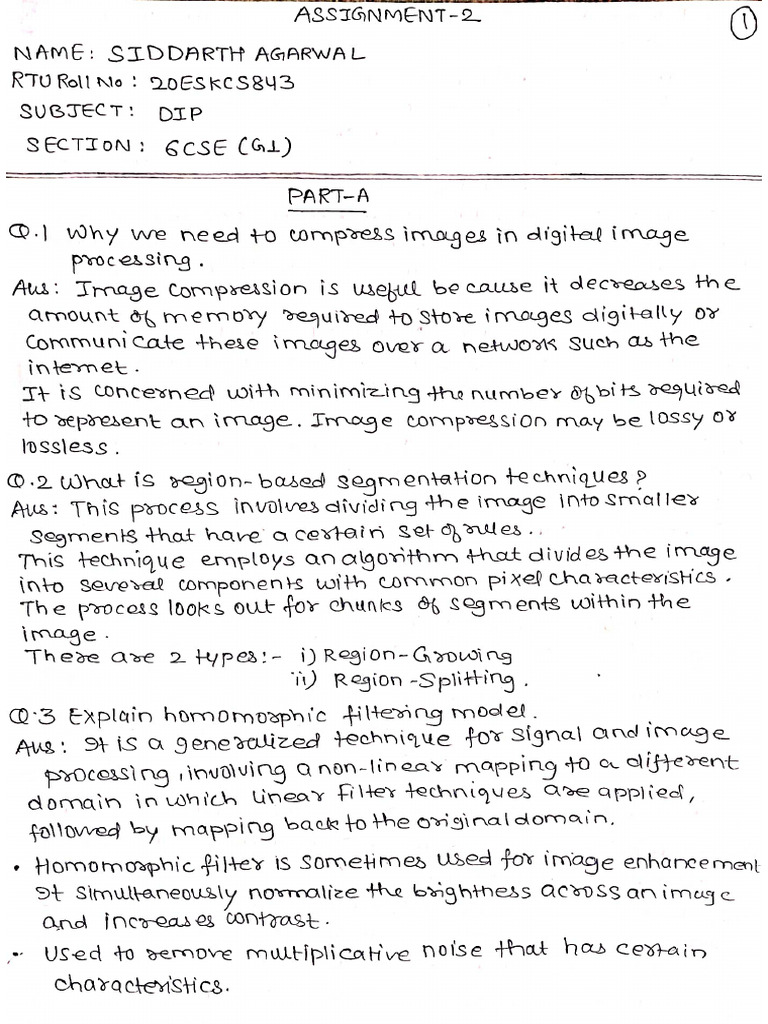 ASSIGNMENT-2
1
NAME: SIDDARTH AGARWAL
RTU Roll No: 20ESKCS843
SUBJECT: DIP
SECTION: 6CSE (G1)
PART-A
Q.1 Why we need to compress images in digital image
processing.
Ans: Image compression is useful because it decreases the
amount of memory required to store images digitally or
communicate these images over a network such as the
internet.
It is concerned with minimizing the number of bits required
to represent an image. Image compression may be lossy or
lossless.
Q.2 What is region-based segmentation techniques?
Ans: This process involves dividing the image into smaller
segments that have a certain set of rules..
This technique employs an algorithm that divides the image
into several components with common pixel characteristics.
The process looks out for chunks of segments within the
image.
There are 2 types:- i) Region-Growing
ii) Region-Splitting.
Q.3 Explain homomorphic filtering model.
Ans: It is a generalized technique for signal and image
processing, involving a non-linear mapping to a different
domain in which linear filter techniques are applied,
followed by mapping back to the original domain.
• Homomorphic filter is sometimes used for image enhancement
It simultaneously normalize the brightness across an image
and increases contrast.
• Used to remove multiplicative noise that has certain
characteristics.